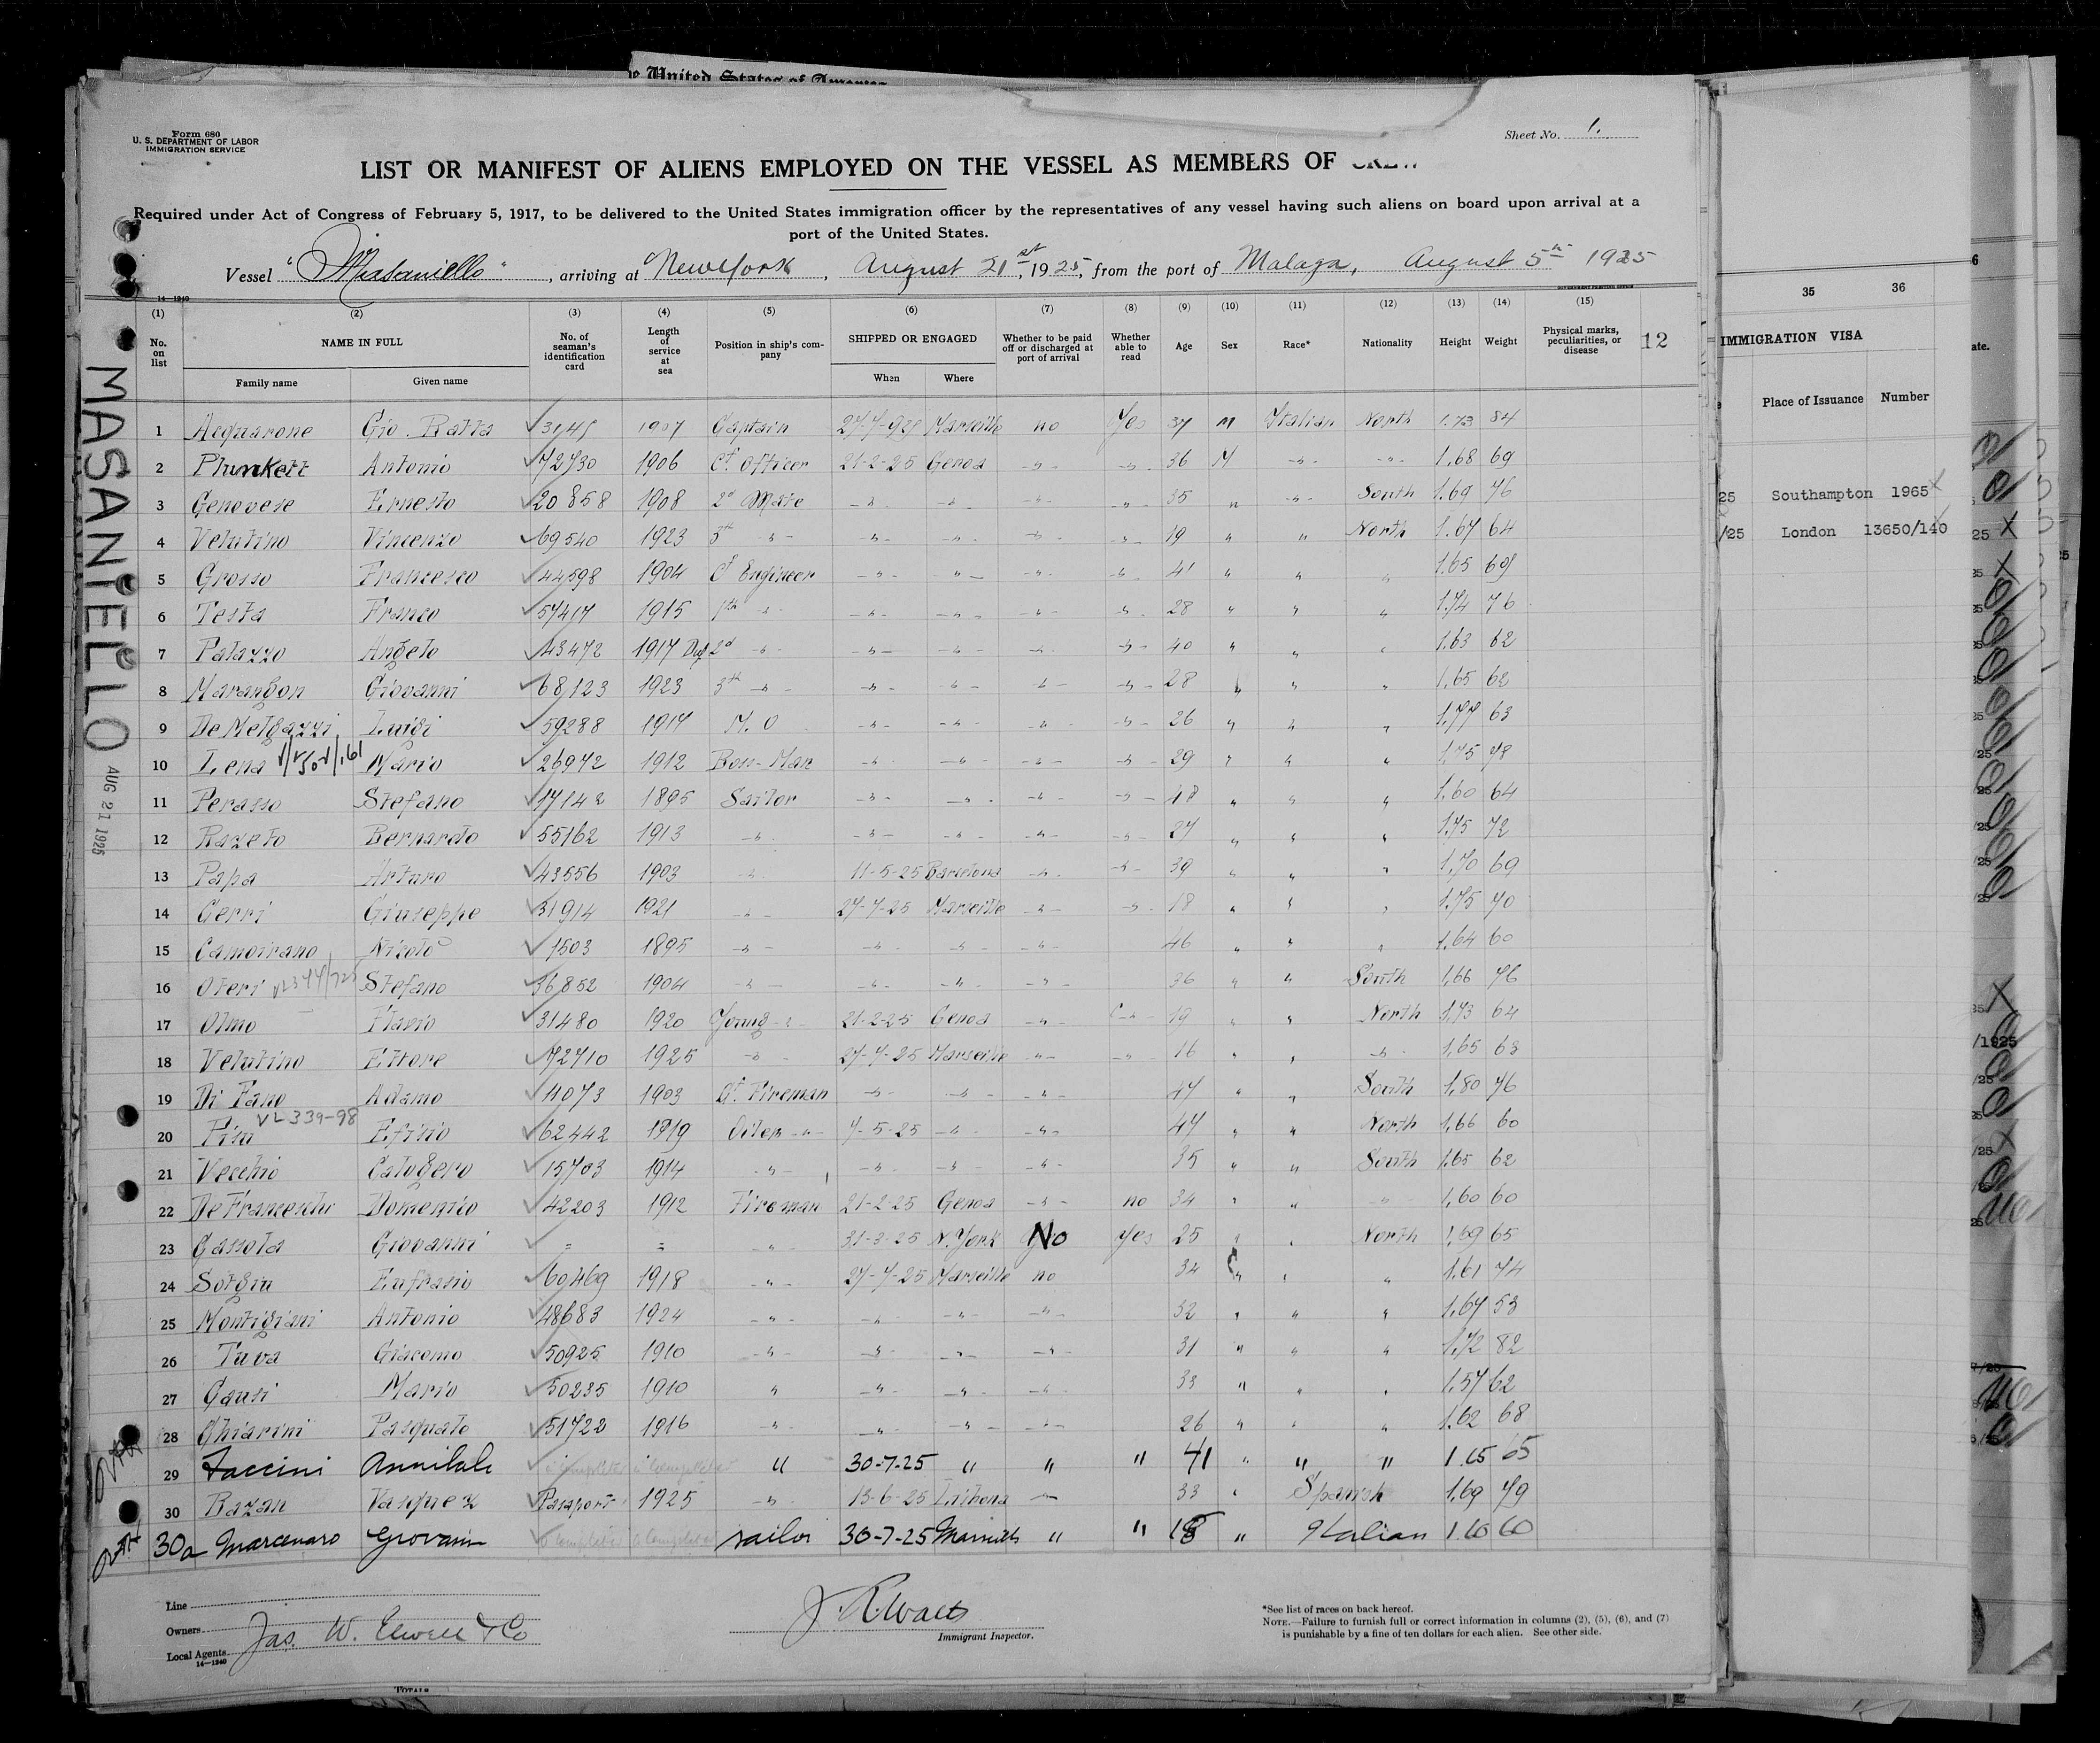 e United States of America
Form 680
U. S. DEPARTMENT OF LABOR
IMMIGRATION SERVICE
Sheet No. 1.
LIST OR MANIFEST OF ALIENS EMPLOYED ON THE VESSEL AS MEMBERS OF CREW
Required under Act of Congress of February 5, 1917, to be delivered to the United States immigration officer by the representatives of any vessel having such aliens on board upon arrival at a
port of the United States.
Vessel "Masaniello", arriving at New York, August 21st, 1925, from the port of Malaga, August 5th 1925
14—1240
(1) (2) (3) (4) (5) (6) (7) (8) (9) (10) (11) (12) (13) (14) (15)
No. on list NAME IN FULL Family name Given name No. of seaman's identification card Length of service at sea Position in ship's company SHIPPED OR ENGAGED When Where Whether to be paid off or discharged at port of arrival Whether able to read Age Sex Race* Nationality Height Weight Physical marks, peculiarities, or disease 12
1 Acquarone Gio. Batta 1907 Captain Marseille no Yes 37 M Italian North 1.73 84
2 Plunkett Antonio 72730 1906 Cf Officer 21-2-25 Genoa -"- -"- 36 M -"- -"- 1.68 69
3 Genovese Ernesto 20858 1908 2d Mate -"- -"- -"- " 35 " -"- South 1.69 76
4 Velutino Vincenzo 69540 1923 3th -"- -"- -"- -"- -"- 19 " " North 1.67 64
5 Grosso Francesco 44598 1904 Cf Engineer -"- "- -"- -"- 41 " " " 1.65 69
6 Testa Franco 57417 1915 1th -"- -"- -"- -"- -"- 28 " " " 1.74 76
7 Palazzo Angelo 43472 1917 2d -"- -"- -"- -"- -"- 40 " " " 1.63 62
8 Marangon Giovanni 68123 1923 3th -"- -"- -"- -"- -"- 28 " " " 1.65 62
9 De Melgazzi Luigi 59288 1917 M. O -"- -"- -"- -"- 26 " " " 1.77 63
10 Lena Mario 26972 1912 Bos-Man -"- -"- -"- -"- 29 " " " 1.75 78
11 Perasso Stefano 17142 1895 Sailor -"- -"- -"- -"- 48 " " " 1.60 64
12 Razeto Bernardo 55162 1913 -"- -"- -"- -"- -"- 27 " " " 1.75 72
13 Papa Arturo 43556 1903 -"- 11-5-25 Barcelona -"- -"- 39 " " " 1.70 69
14 Gerri Giuseppe 31914 1921 -"- 27-7-25 Marseille -"- -"- 18 " " " 1.75 70
15 Camoirano Nicolò 1503 1895 -"- -"- -"- -"- 46 " " " 1.64 60
16 Oteri Stefano 36852 1904 -"- -"- -"- -"- 36 " " South 1.66 76
17 Olmo Flavio 31480 1920 Young -"- 21-2-25 Genoa -"- -"- 19 " " North 1.73 64
18 Velutino Ettore 72710 1925 -"- 27-7-25 Marseille -"- -"- 16 " " -"- 1.65 63
19 Di Fano Adamo 11073 1903 Fireman -"- -"- -"- 47 " " South 1.80 76
VL 339-98
20 Pisu Efisio 62442 1919 Oiler -"- 7-5-25 -"- -"- 44 " " North 1.66 60
21 Vecchio Calogero 15703 1914 -"- -"- -"- -"- 35 " " South 1.65 62
22 De Franceschi Domenico 42203 1912 Fireman 21-2-25 Genoa -"- no 34 " " -"- 1.60 60
23 Gassola Giovanni = = -"- 31-3-25 N. York No yes 25 " " North 1.69 65
24 Sotgiu Eufrasio 60469 1918 -"- 27-7-25 Marseille no 34 " " " 1.61 74
25 Montigiani Antonio 48683 1924 -"- -"- -"- -"- 32 " " " 1.67 53
26 Tuva Giacomo 50925 1910 -"- -"- -"- -"- 31 " " " 1.72 82
27 Gausi Mario 50235 1910 " -"- -"- -"- 33 " " " 1.57 62
28 Ghiarini Pasquale 51722 1916 -"- -"- -"- -"- 26 " " " 1.62 68
29 Faccini Annibale " 30-7-25 " " " 41 " " " 1.65 65
30 Bazan Vasquez Passport 1925 -"- 13-6-25 Lisbona — 33 " Spanish 1.69 79
30a Marcenaro Giovanni sailor 30-7-25 Marseille " " 18 " Italian 1.60 60
Line
Owners
Local Agents Jas. W. Elwell & Co
14—1240
J. R. Watts
Immigrant Inspector.
*See list of races on back hereof.
NOTE.—Failure to furnish full or correct information in columns (2), (5), (6), and (7)
is punishable by a fine of ten dollars for each alien. See other side.
TOTALS
MASANIELLO AUG 21 1925
35 36
IMMIGRATION VISA
Place of Issuance Number
25 Southampton 1965
/25 London 13650/140